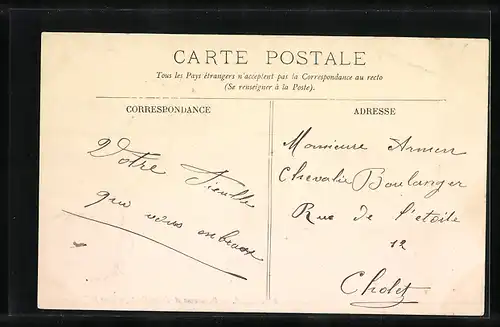 CARTE POSTALE
Tous les Pays étrangers n'acceptent pas la Correspondance au recto
(Se renseigner à la Poste).
CORRESPONDANCE
Votre
que vous
ADRESSE
Monsieure Armen
Chevalie Boulanger
Rue de l'etoile
12
Cholet